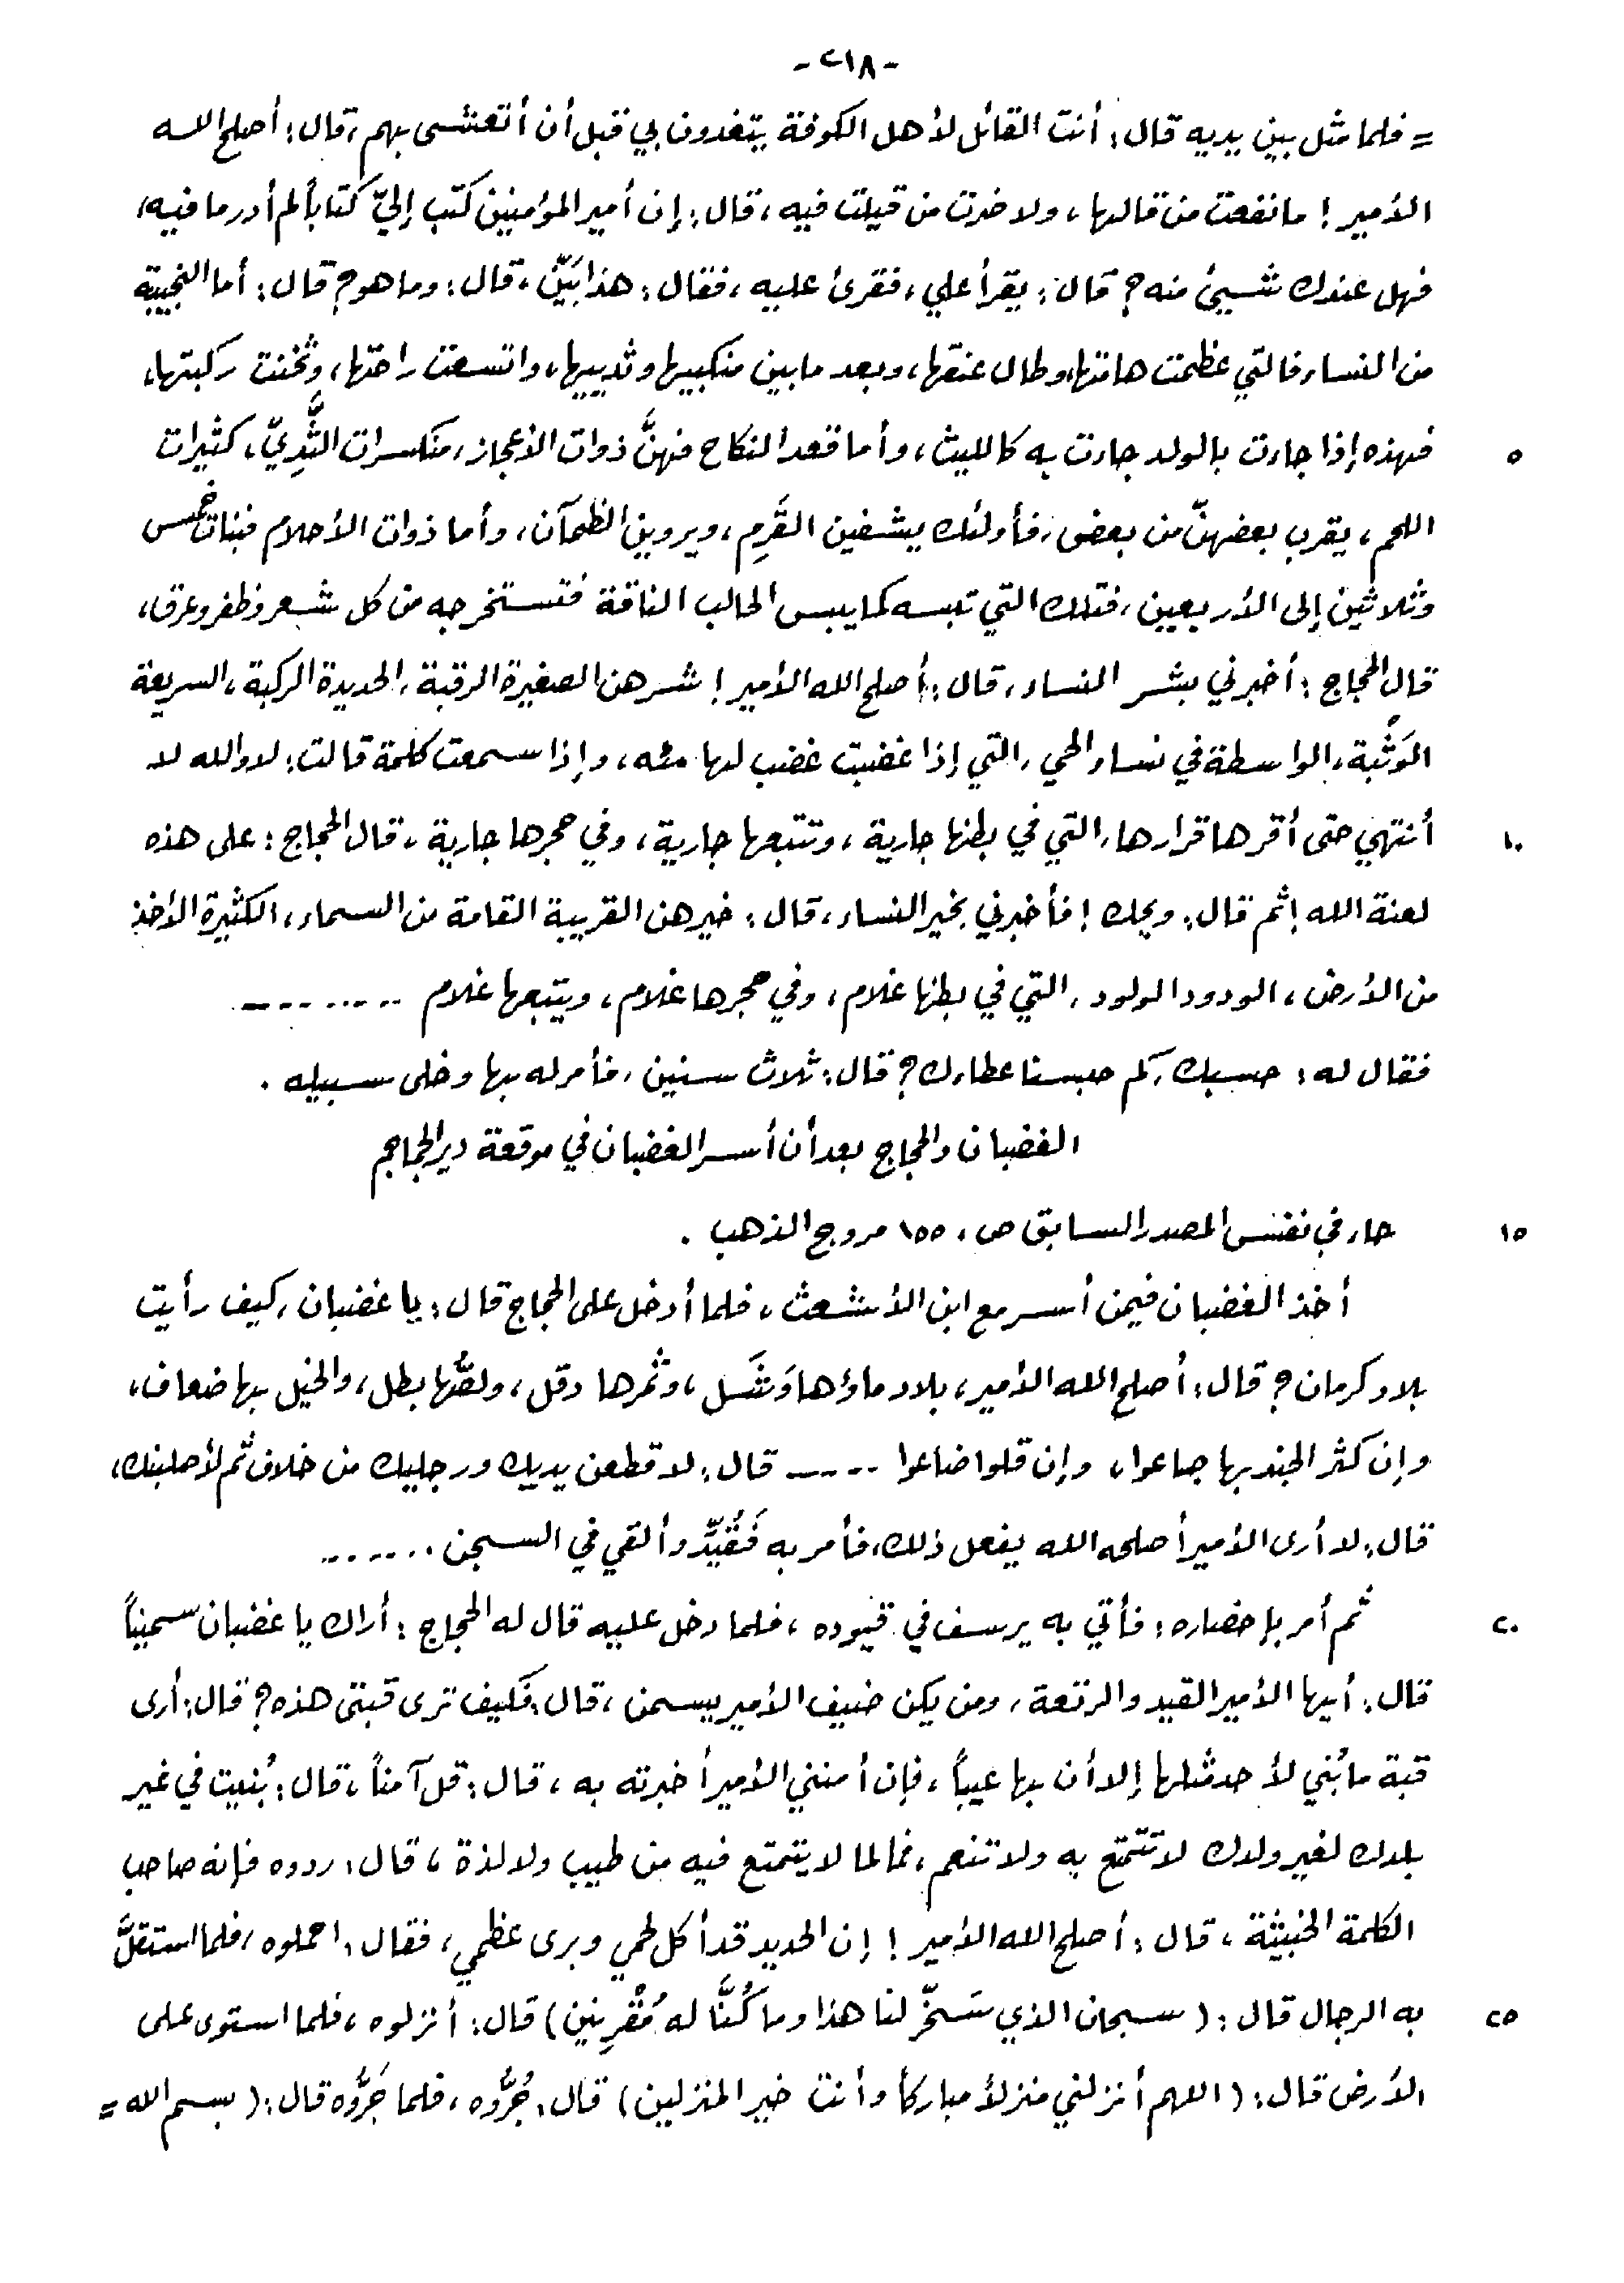 - ٢١٨ -
= فلما مثل بين يديه قال: أنت القائل لأهل الكوفة يتغدون بي قبل أن أتعشى بهم، قال: أصلح الله
الأمير! ما نفعت من قالها، ولا ضرت من قيلت فيه، قال: إن أمير المؤمنين كتب إليّ كتاباً لم أدر ما فيه،
فهل عندك شيئ منه؟ قال: يقرأ علي، فقرئ عليه، فقال: هذا بَيّن، قال: وما هو؟ قال: أما النجيبة
من النساء فالتي عظمت هامتها، وطال عنقها، وبعد ما بين منكبيها وثدييها، واتسعت راحتها، وثخنت ركبتها،
٥ فهذه إذا جاءت بالولد جاءت به كالليث، وأما قعد النكاح فهنَّ ذوات الأعجاز، منكسرات الثُّدِيّ، كثيرات
اللحم، يقرب بعضهنّ من بعض، فأولئك يشفين القَرِم، ويروين الظمآن، وأما ذوات الأحلام فبنات خمس
وثلاثين إلى الأربعين، فتلك التي تبسه كما يبس الحالب الناقة فتستخرجه من كل شعر وظفر وعرق،
قال الحجاج: أخبرني بشر النساء، قال: أصلح الله الأمير! شرهن الصغيرة الرقبة، الحديدة الركبة، السريعة
الوَثْبة، الواسطة في نساء الحي، التي إذا غضبت غضب لها مئه، وإذا سمعت كلمة قالت: لا والله لا
١٠ أنتهي حتى أقرها قرارها، التي في بطنها جارية، وتتبعها جارية، وفي حجرها جارية، قال الحجاج: على هذه
لعنة الله! ثم قال: ويحك! فأخبرني بخير النساء، قال: خيرهن القريبة القامة من السماء، الكثيرة الأخذ
من الأرض، الودود الولود، التي في بطنها غلام، وفي حجرها غلام، ويتبعها غلام ........
فقال له: حسبك، كم حبسنا عطاءك؟ قال: ثلاث سنين، فأمر له بها وخلى سبيله.
الغضبان والحجاج بعد أن أسر الغضبان في موقعة دير الجماجم
١٥ جاء في نفس المصدر السابق ص، ١٥٥ مروج الذهب.
أخذ الغضبان فيمن أسر مع ابن الأشعث، فلما أدخل على الحجاج قال: يا غضبان، كيف رأيت
بلاد كرمان؟ قال: أصلح الله الأمير، بلاد ماؤها وَشَل، وثمرها دقل، ولصُّها بطل، والخيل بها ضعاف،
وإن كثر الجند بها جاعوا، وإن قلوا ضاعوا ..... قال: لاقطعن يديك ورجليك من خلاف ثم لأصلبنك،
قال: لا أرى الأمير أصلحه الله يفعل ذلك، فأمر به فَقُيِّدَ وألقي في السجن .......
٢٠ ثم أمر بإحضاره: فأتي به يرسف في قيوده، فلما دخل عليه قال له الحجاج: أراك يا غضبان سميناً
قال: أيها الأمير القيد والرتعة، ومن يكن ضيف الأمير يسمن، قال: فكيف ترى قبتي هذه؟ قال: أرى
قبة ما بُني لأحد مثلها إلا أن بها عيباً، فإن أمنني الأمير أخبرته به، قال: قل آمناً، قال: بُنيت في غير
بلدك لغير ولدك لا تتمتع به ولا تنعم، فما لما لا يتمتع فيه من طيب ولا لذة، قال: ردوه فإنه صاحب
الكلمة الخبيثة، قال: أصلح الله الأمير! إن الحديد قد أكل لحمي وبرى عظمي، فقال: احملوه، فلما استقلَّ
٢٥ به الرجال قال: (سبحان الذي سَخّر لنا هذا وما كُنَّا له مُقْرِنين) قال: أنزلوه، فلما استوى على
الأرض قال: (اللهم أنزلني منزلاً مباركاً وأنت خير المنزلين) قال: جُرُّوه، فلما جَرُّوه قال: (بسم الله =